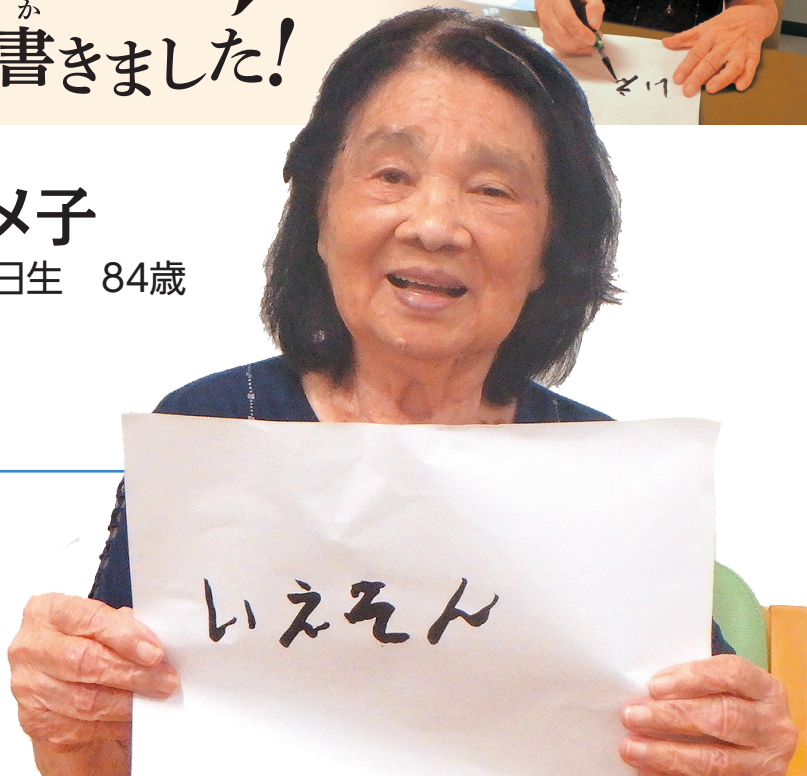 か
書きました!
メ子
日生　84歳
いえそん
いえ